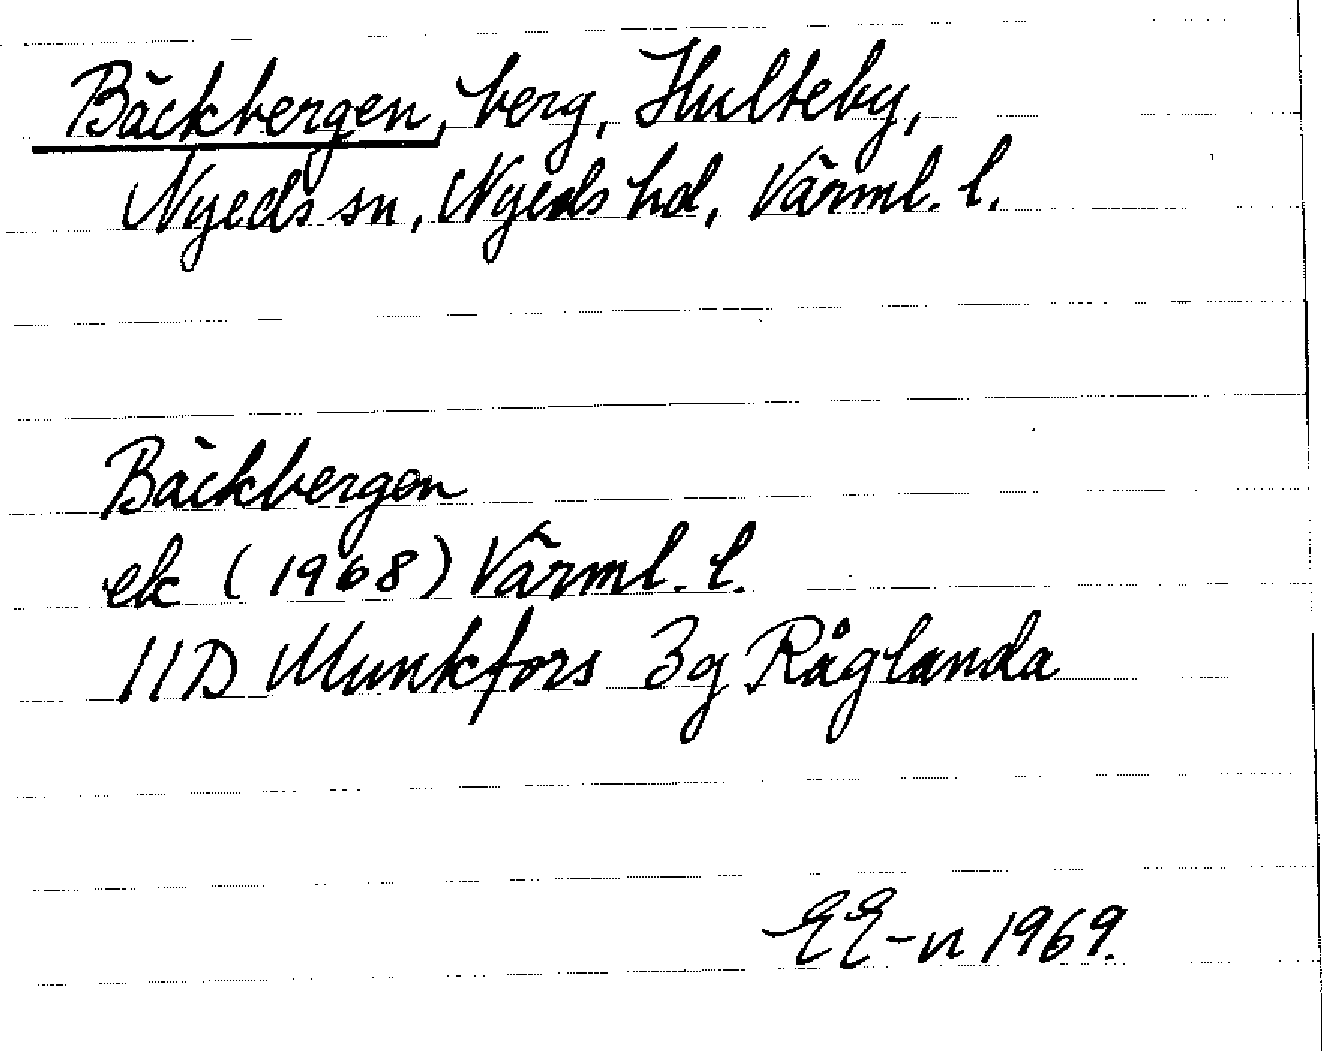 Bäckbergen, berg, Hulteby,
Nyeds sn, Nyeds hd, Värml. l.
Bäckbergen
ek (1968) Värml. l.
11D Munkfors 3g Råglanda
EE-n 1969.